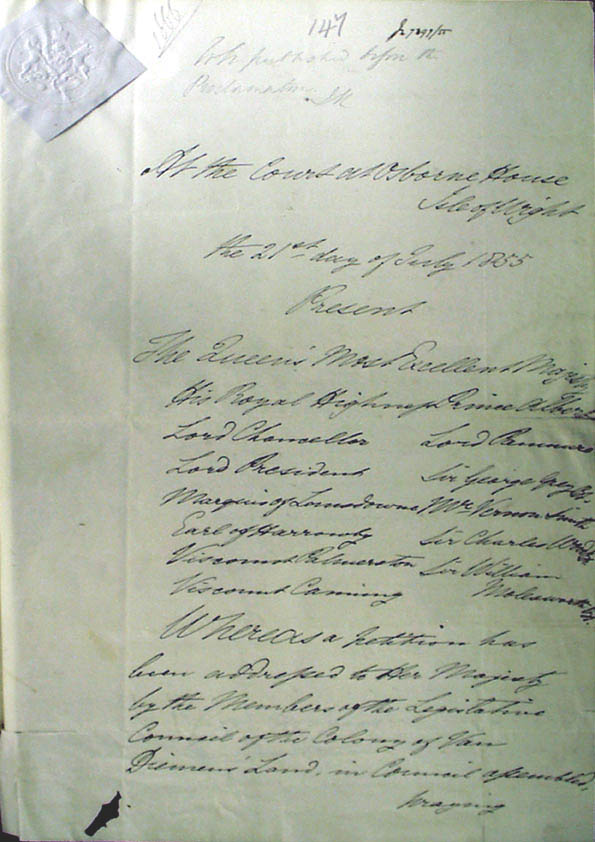 1666
147
To be published before the
Proclamation.
At the Court at Osborne House
Isle of Wight
the 21st day of July 1855
Present
The Queen's Most Excellent Majesty
His Royal Highness Prince Albert
Lord Chancellor Lord Panmure
Lord President Sir George Grey Bt.
Marquis of Lansdowne Mr. Vernon Smith
Earl of Harrowby Sir Charles Wood Bt
Viscount Palmerston Sir William
Viscount Canning Molesworth Bt.
Whereas a Petition has
been addressed to Her Majesty
by the Members of the Legislative
Council of the Colony of Van
Diemen's Land, in Council assembled,
praying